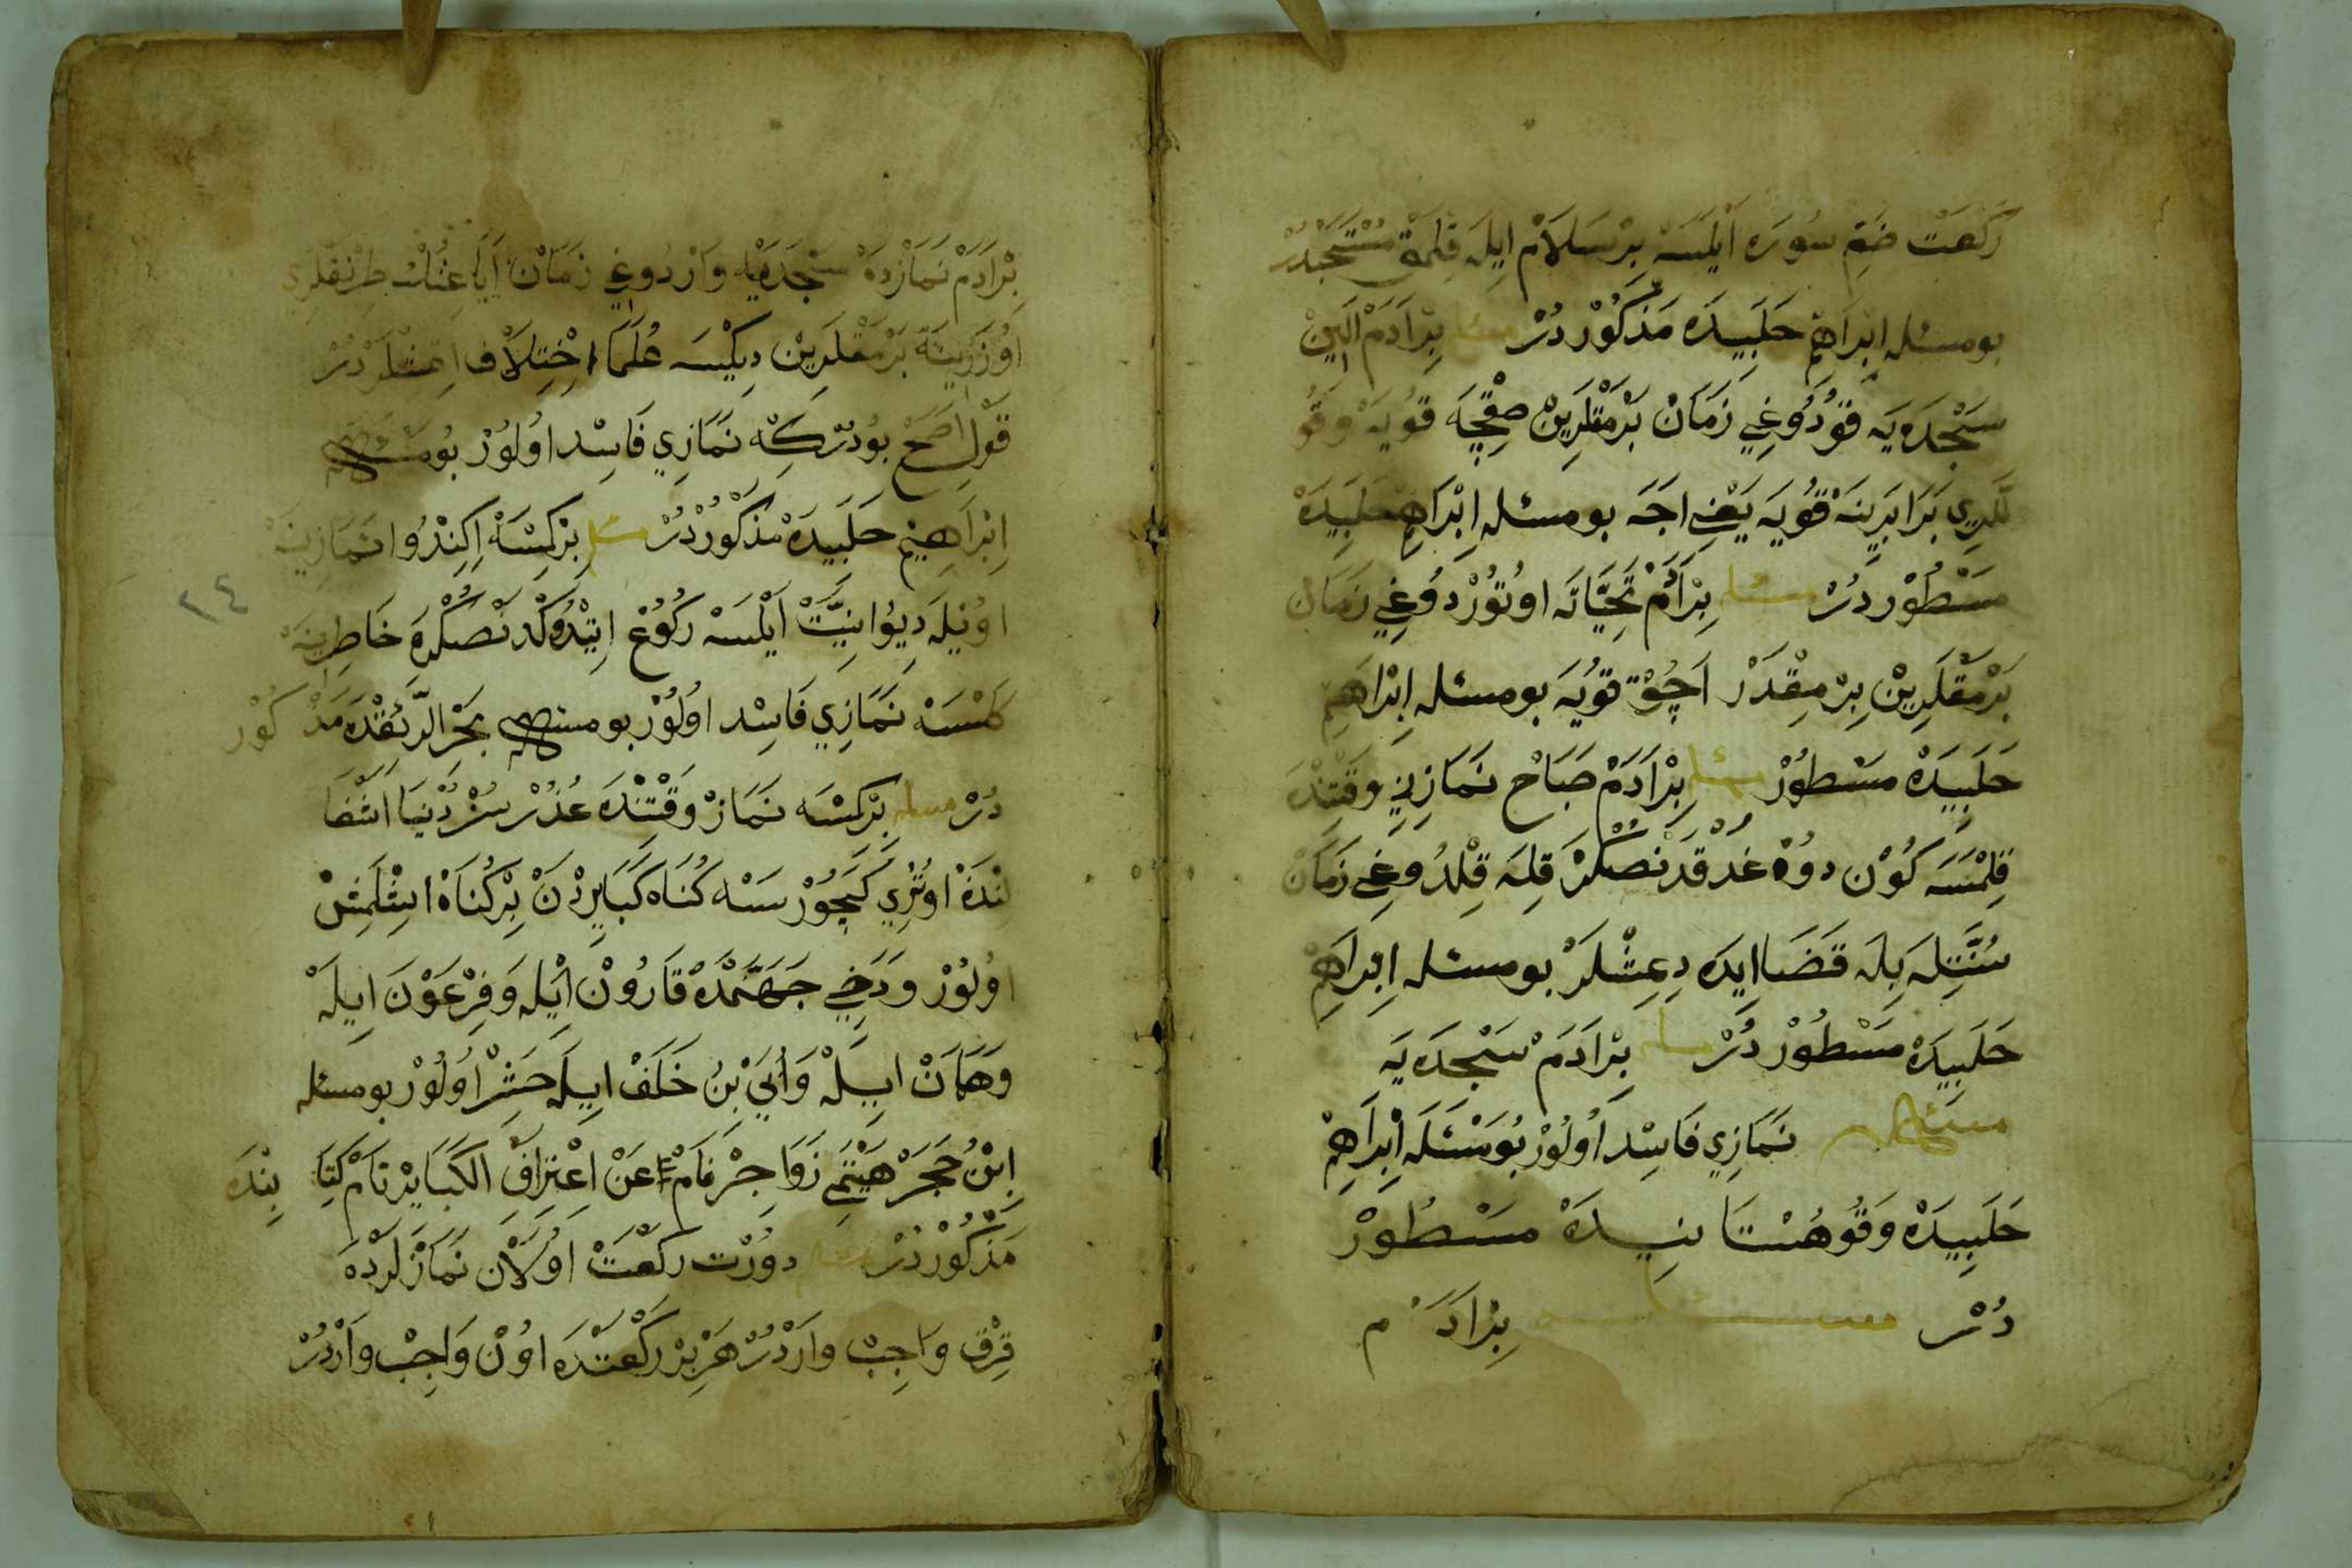 رَكْعَتْ ضَمِّ سُورَه اَيْلَسَه بِرْ سَلَامْ اِيلَه قِلْمَقْ مُسْتَحَبْدُرْ
بومسئله اِبْرَاهِمْ حَلَبِيدَه مَذْكُورْدُرْ مسئله بِرْ اَدَمْ اَلِينْ
سَجْدَه يَه قُودُوغِي زَمَانْ بَرْمَقْلَرِينْ صِقِجَه قُويَه وَقُو
لَّلرِي بَرَابَرِينَه قُويَه يَعْنِي اجَه بومسئله اِبْرَاهِمْ حَلَبِيدَه
مَسْطُورْدُرْ مسئله بِرْ اَدَمْ تَحِيَّاتَه اوُتُورْدُوغِي زَمَانْ
بَرْمَقْلَرِينْ بِرْ مِقْدَرْ اَچُوقْ قُويَه بومسئله اِبْرَاهِمْ
حَلَبِيدَه مَسْطُورْ مسئله بِرْ اَدَمْ صَبَاحْ نَمَازِنِي وَقْتِنْدَه
قِلْمَسَه كُونْ دوُغْدُقْدَنْصُكْرَه قِلَه قِلْدُوغِي زَمَانْ
سُنَّتِلَه بِلَه قَضَا ايدَه دِمِشْلَرْ بومسئله اِبْرَاهِمْ
حَلَبِيدَه مَسْطُورْدُرْ مسئله بِرْ اَدَمْ سَجْدَه يَه
مسئله نَمَازِي فَاسِدْ اوُلُورْ بُومَسْئَلَه اِبْرَاهِمْ
حَلَبِيدَه وَقُوهُسْتَانِيدَه مَسْطُورْ
دُرْ مسئله بِرْ اَدَمْ
بِرْ اَدَمْ نَمَازْدَه سَجْدَه يَه وَارْدُوغِي زَمَانْ اَيَاغِنُكْ طِرْنَقْلَرِي
اوُزَرِينَه بَرْمَقْلَرِينْ دِيكْمَسَه عُلَمَا اِخْتِلَافْ اِتْمِشْلَرْدُرْ
قَوْلِ اَصَحْ بُودُرْكِه نَمَازِي فَاسِدْ اوُلُورْ بُومسئله
اِبْرَاهِيمْ حَلَبِيدَه مَذْكُورْدُرْ مسئله بِرْ كِمْسَه اِكِنْدُوا نَمَازِينَه
اوُيْلَه دِيُوا نِيَّتْ اَيْلَسَه رُكُوعْ اِتِدُوكْدَنْصُكْرَه خَاطِرِينَه
كَلْسَه نَمَازِي فَاسِدْ اوُلُورْ بومسئله بَحْرِ الرَّئِقْدَه مَذْكُورْ
دُرْ مسئله بِرْ كِمْسَه نَمَازْ وَقْتِنْدَه عُذُرْسُزْ دُنْيَا اَشْغَا
لِنْدَه اوُتُرِي كَچُورْسَه كُنَاه كَبَايِرْدَنْ بِرْ كُنَاه اِشْلَمِشْ
اوُلُورْ وَدَخِي جَهَنَّمْدَه قَارُونْ اَيْلَه وَفِرْعَوْنْ اِيلَه
وَهَامَانْ اِيلَه وَاُبَيْ بِنْ خَلَفْ اِيلَه حَشِرْ اوُلُورْ بومسئله
اِبْنُ حَجَرْ هَيْتَمِي زَوَاجِرْ نَامْ عَنْ اِعْتِرَافِ الْكَبَايِرْ نَامْ كِتَابِنْدَه
مَذْكُورْدُرْ مسئله دوُرْت رَكْعَتْ اوُلَانْ نَمَازْلَرْدَه
قِرْقْ وَاجِبْ وَارْدُرْ هَرْ بِرْ رَكْعَتْدَه اوُنْ وَاجِبْ وَارْدُرْ
٢٤